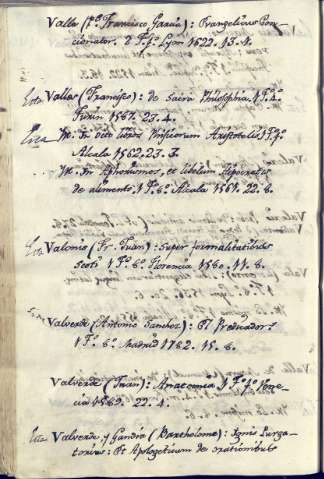 Valle (Pe. Francisco Garcia): Evangelicus Con-
cionator. 2 Fo. Lyon 1622. 13. 4.
Esta Valles (Francisco): de Sacra Philosophia. 1 Fo. 4o.
Turin 1587. 23. 4.
Esta M. In octo libros Phisicorum Aristotelis 1 Fo.
Alcala 1562. 23. 3.
M. In Aphorismos, et libelum Hipocratis
de alimento. 1 Fo. 8o. Alcala 1561. 22. 8.
Esta Valonio (Fr. Juan): Super formalitatibus
Scoti 1 Fo. 8o. Florencia 1580. 11. 8.
Valverde (Antonio Sanchez): El Predicador
1 Fo. 8o. Madrid 1782. 15. 8.
Valverde (Juan): Anatomia 1 Fo. Vene-
cia 1589. 22. 4.
Esta Valverde, y Gandia (Bartholome): Ignis Purga-
torius: Et Apologeticum de orationibus